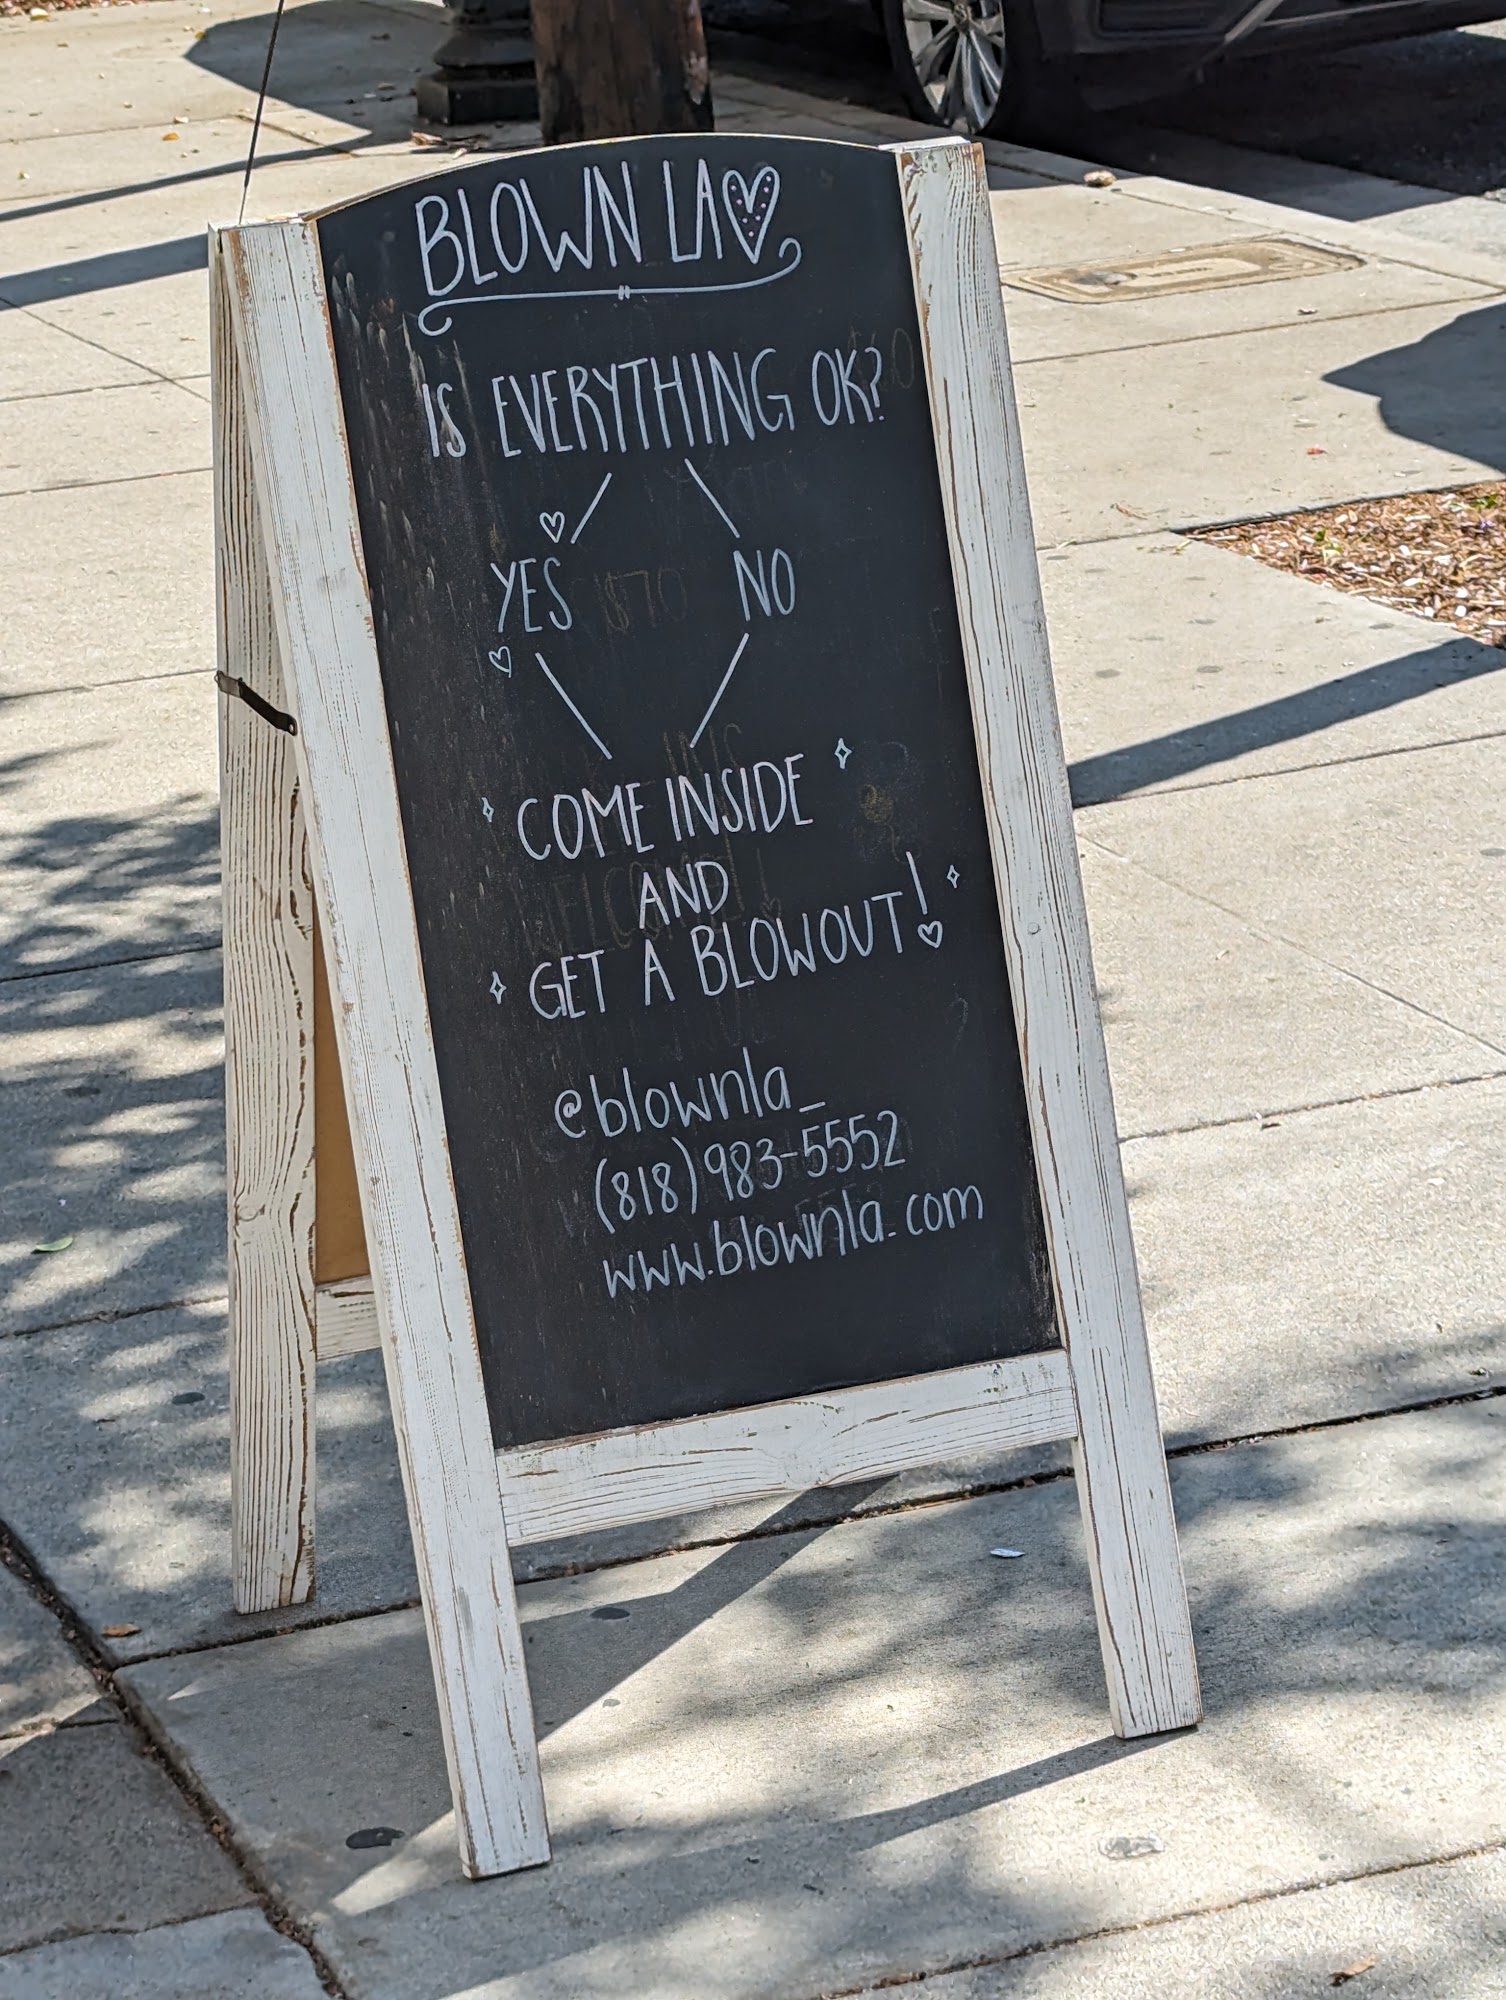 BLOWN LA
IS EVERYTHING OK?
YES NO
COME INSIDE
AND
GET A BLOWOUT!
@blownla_
(818) 983-5552
www.blownla.com